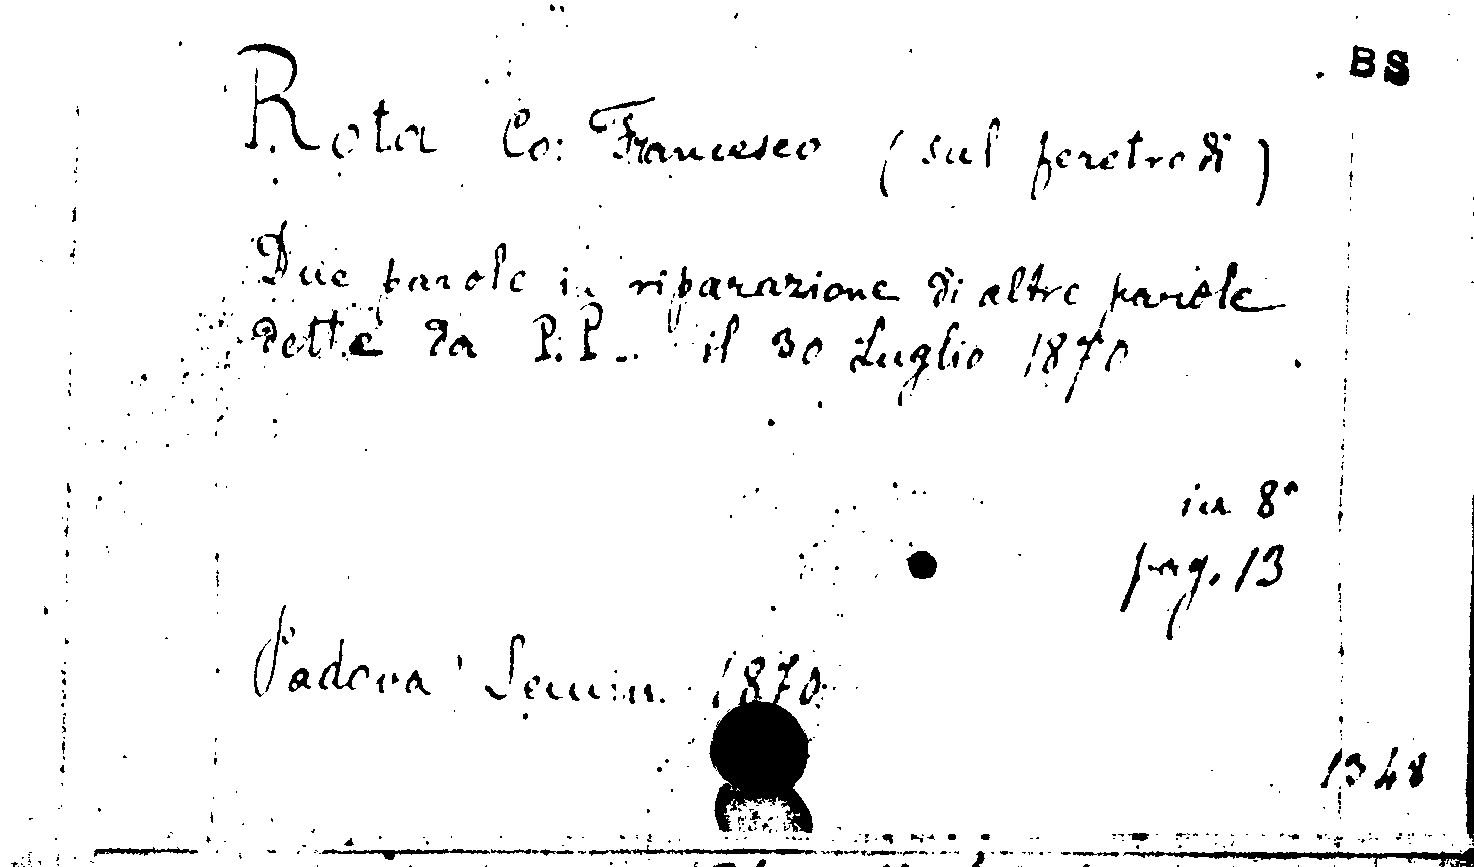 BS
Rota Co: Francesco (sul feretro di)
Due parole in riparazione di altre parole
dette da P.P.. il 30 Luglio 1870
in 8°
pag. 13
Padova Semin. 1870
1348